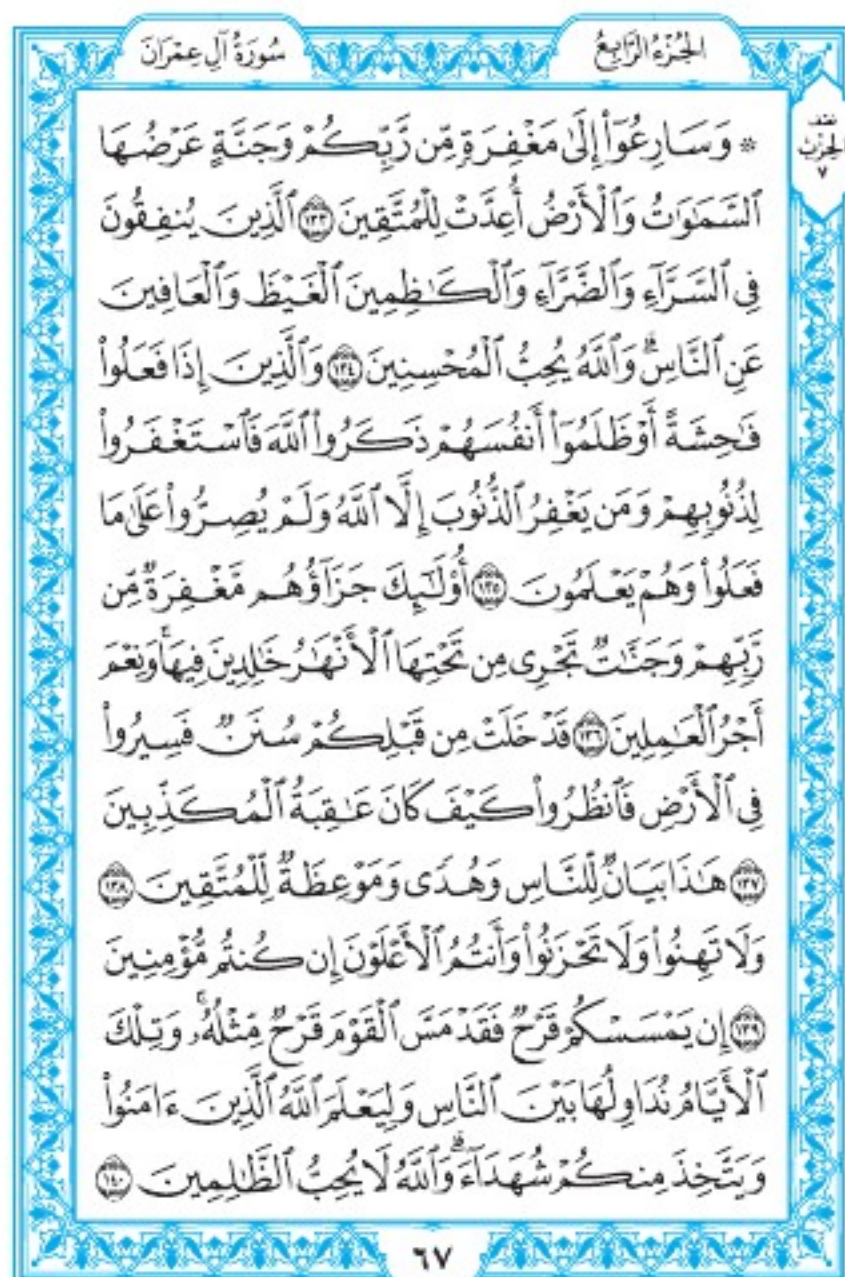 سُورَةُ آلِ عِمْرَانَ
الجُزْءُ الرَّابِعُ
نصف
الحزب
٧
* وَسَارِعُوٓاْ إِلَىٰ مَغْفِرَةٖ مِّن رَّبِّكُمْ وَجَنَّةٍ عَرْضُهَا
ٱلسَّمَٰوَٰتُ وَٱلْأَرْضُ أُعِدَّتْ لِلْمُتَّقِينَ ١٣٣ ٱلَّذِينَ يُنفِقُونَ
فِي ٱلسَّرَّآءِ وَٱلضَّرَّآءِ وَٱلْكَٰظِمِينَ ٱلْغَيْظَ وَٱلْعَافِينَ
عَنِ ٱلنَّاسِۗ وَٱللَّهُ يُحِبُّ ٱلْمُحْسِنِينَ ١٣٤ وَٱلَّذِينَ إِذَا فَعَلُواْ
فَٰحِشَةً أَوْ ظَلَمُوٓاْ أَنفُسَهُمْ ذَكَرُواْ ٱللَّهَ فَٱسْتَغْفَرُواْ
لِذُنُوبِهِمْ وَمَن يَغْفِرُ ٱلذُّنُوبَ إِلَّا ٱللَّهُ وَلَمْ يُصِرُّواْ عَلَىٰ مَا
فَعَلُواْ وَهُمْ يَعْلَمُونَ ١٣٥ أُوْلَٰٓئِكَ جَزَآؤُهُم مَّغْفِرَةٞ مِّن
رَّبِّهِمْ وَجَنَّٰتٞ تَجْرِي مِن تَحْتِهَا ٱلْأَنْهَٰرُ خَٰلِدِينَ فِيهَاۚ وَنِعْمَ
أَجْرُ ٱلْعَٰمِلِينَ ١٣٦ قَدْ خَلَتْ مِن قَبْلِكُمْ سُنَنٞ فَسِيرُواْ
فِي ٱلْأَرْضِ فَٱنظُرُواْ كَيْفَ كَانَ عَٰقِبَةُ ٱلْمُكَذِّبِينَ
١٣٧ هَٰذَا بَيَانٞ لِّلنَّاسِ وَهُدٗى وَمَوْعِظَةٞ لِّلْمُتَّقِينَ ١٣٨
وَلَا تَهِنُواْ وَلَا تَحْزَنُواْ وَأَنتُمُ ٱلْأَعْلَوْنَ إِن كُنتُم مُّؤْمِنِينَ
١٣٩ إِن يَمْسَسْكُمْ قَرْحٞ فَقَدْ مَسَّ ٱلْقَوْمَ قَرْحٞ مِّثْلُهُۥۚ وَتِلْكَ
ٱلْأَيَّامُ نُدَاوِلُهَا بَيْنَ ٱلنَّاسِ وَلِيَعْلَمَ ٱللَّهُ ٱلَّذِينَ ءَامَنُواْ
وَيَتَّخِذَ مِنكُمْ شُهَدَآءَۗ وَٱللَّهُ لَا يُحِبُّ ٱلظَّٰلِمِينَ ١٤٠
٦٧